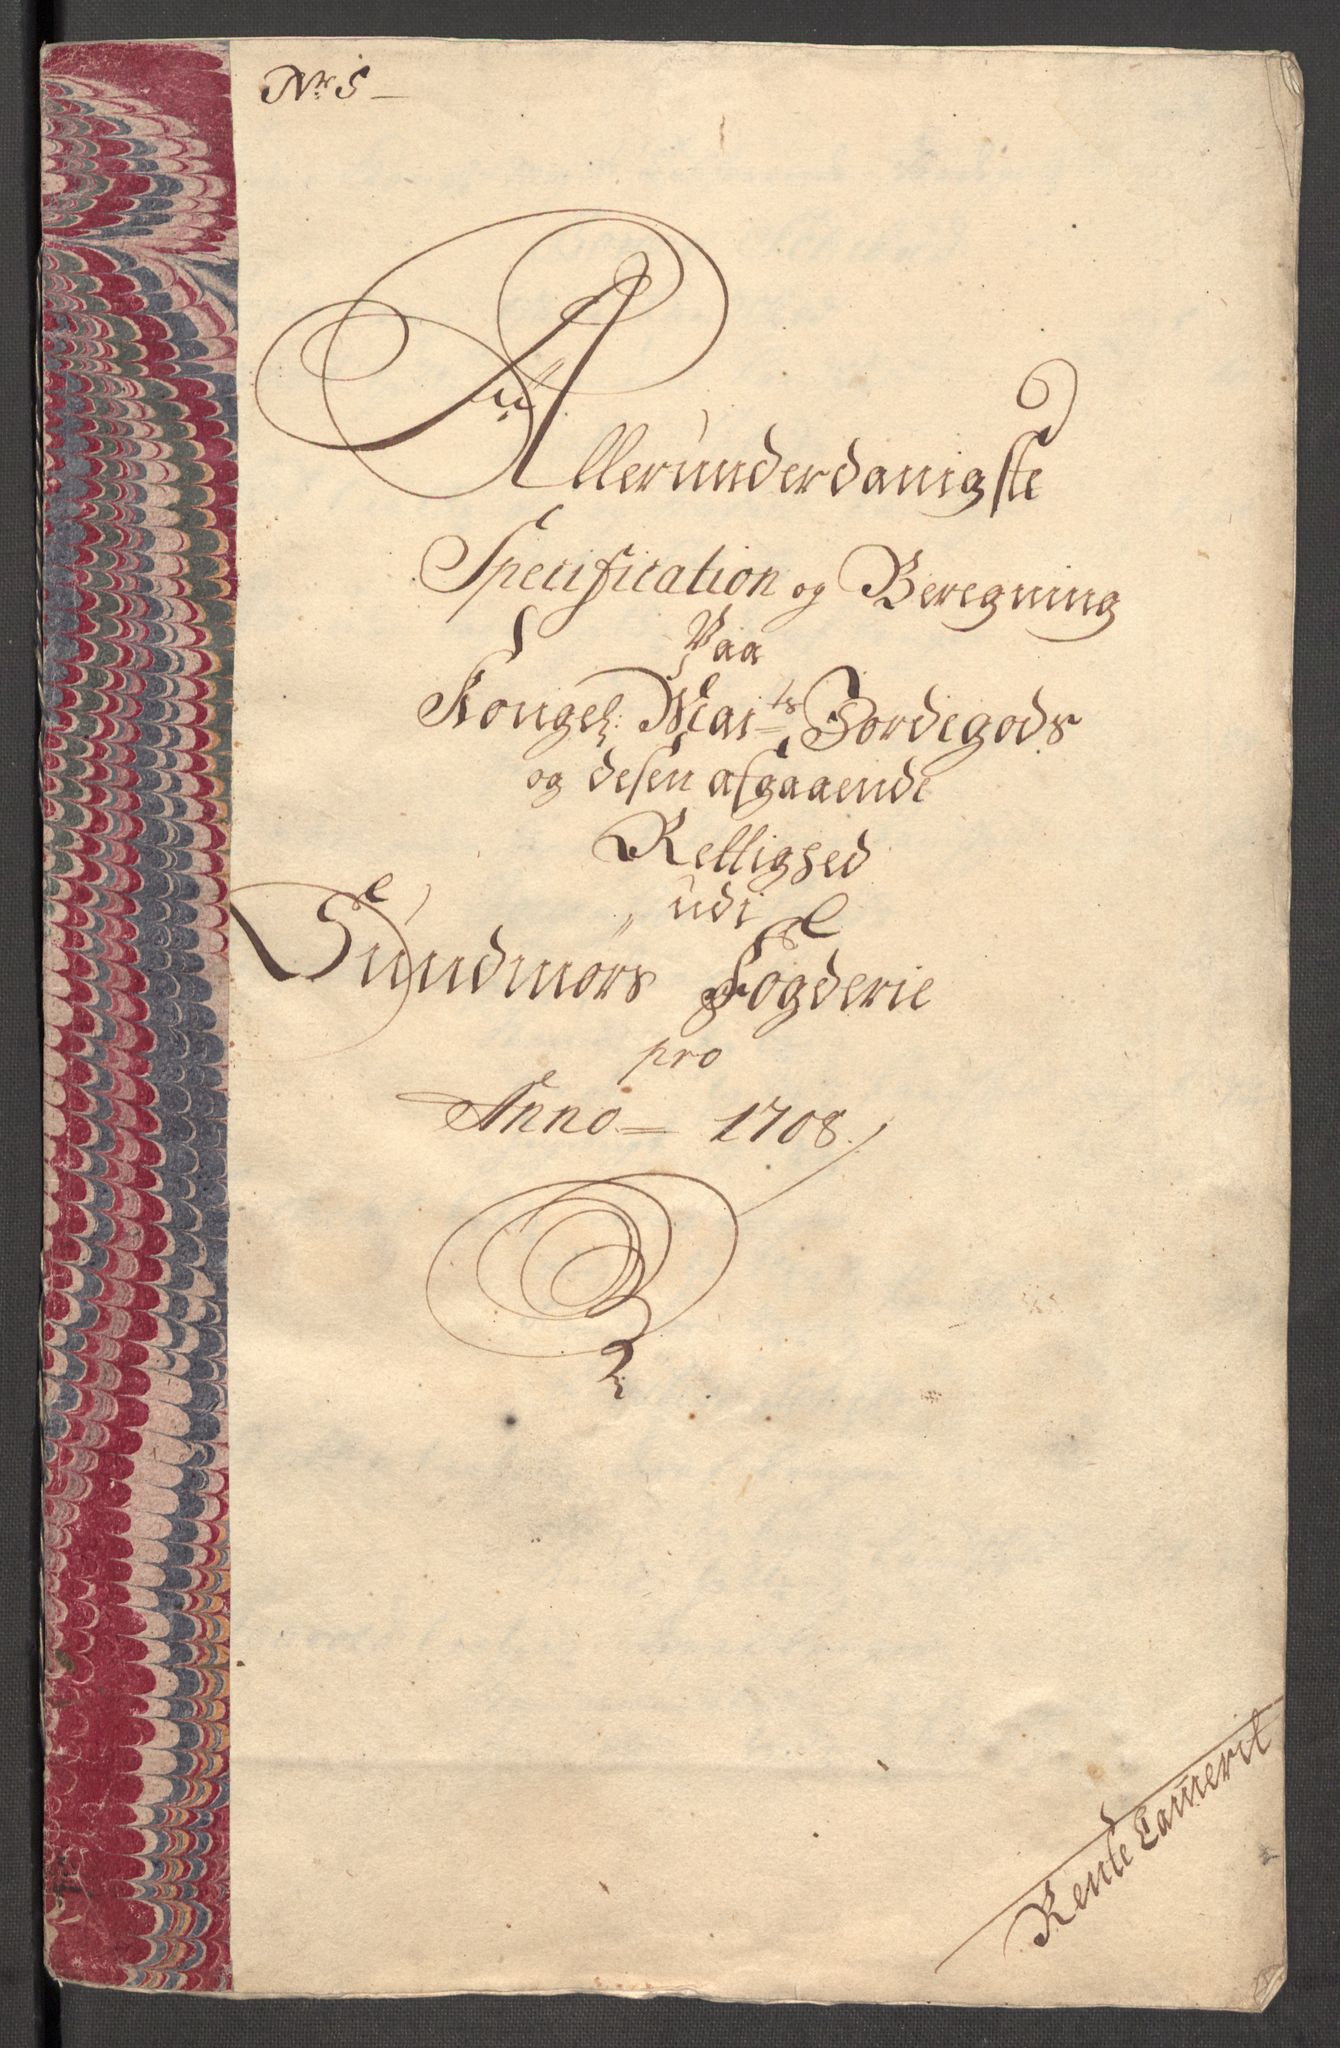 No 5
Allerunderdanigste
Specification og Beregning
Paa
Kongel: Maits Jordegods
og desen afgaaende
Rettighed
udi
Sundmørs Fogderie
pro
Anno = 1708
Rente Camerit